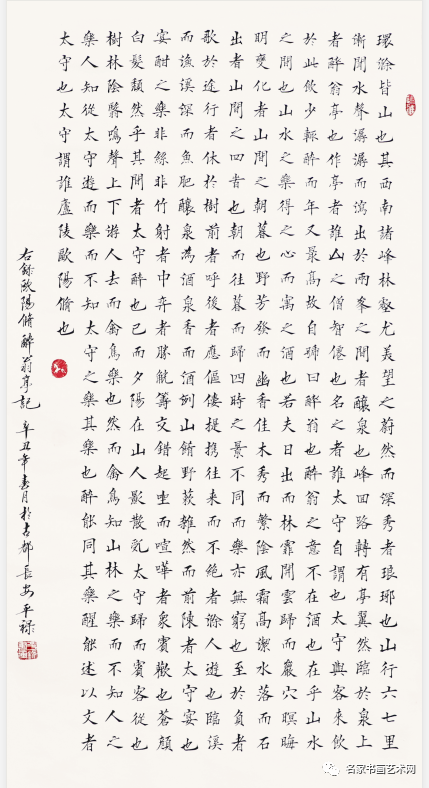 環滁皆山也其西南諸峰林壑尤美望之蔚然而深秀者琅琊也山行六七里
漸聞水聲潺潺而瀉出於兩峯之間者釀泉也峰回路轉有亭翼然臨於泉上
者醉翁亭也作亭者誰山之僧智僊也名之者誰太守自謂也太守與客來飲
於此飲少輒醉而年又最高故自號曰醉翁也醉翁之意不在酒也在乎山水
之間也山水之樂得之心而寓之酒也若夫日出而林霏開雲歸而巖穴暝晦
明變化者山間之朝暮也野芳發而幽香佳木秀而繁陰風霜高潔水落而石
出者山間之四旹也朝而往暮而歸四時之景不同而樂亦無窮也至於負者
歌於途行者休於樹前者呼後者應傴僂提攜往來而不絕者滁人遊也臨溪
而漁溪深而魚肥釀泉為酒泉香而酒冽山餚野蔌雜然而前陳者太守宴也
宴酣之樂非絲非竹射者中弈者勝觥籌交錯起坐而喧嘩者衆賓歡也蒼顏
白髮頹然乎其間者太守醉也已而夕陽在山人影散亂太守歸而賓客從也
樹林陰翳鳴聲上下遊人去而禽鳥樂也然而禽鳥知山林之樂而不知人之
樂人知從太守遊而樂而不知太守之樂其樂也醉能同其樂醒能述以文者
太守也太守謂誰廬陵歐陽脩也
右錄歐陽脩醉翁亭記 辛丑年春月於古都長安平祿
名家书画艺术网